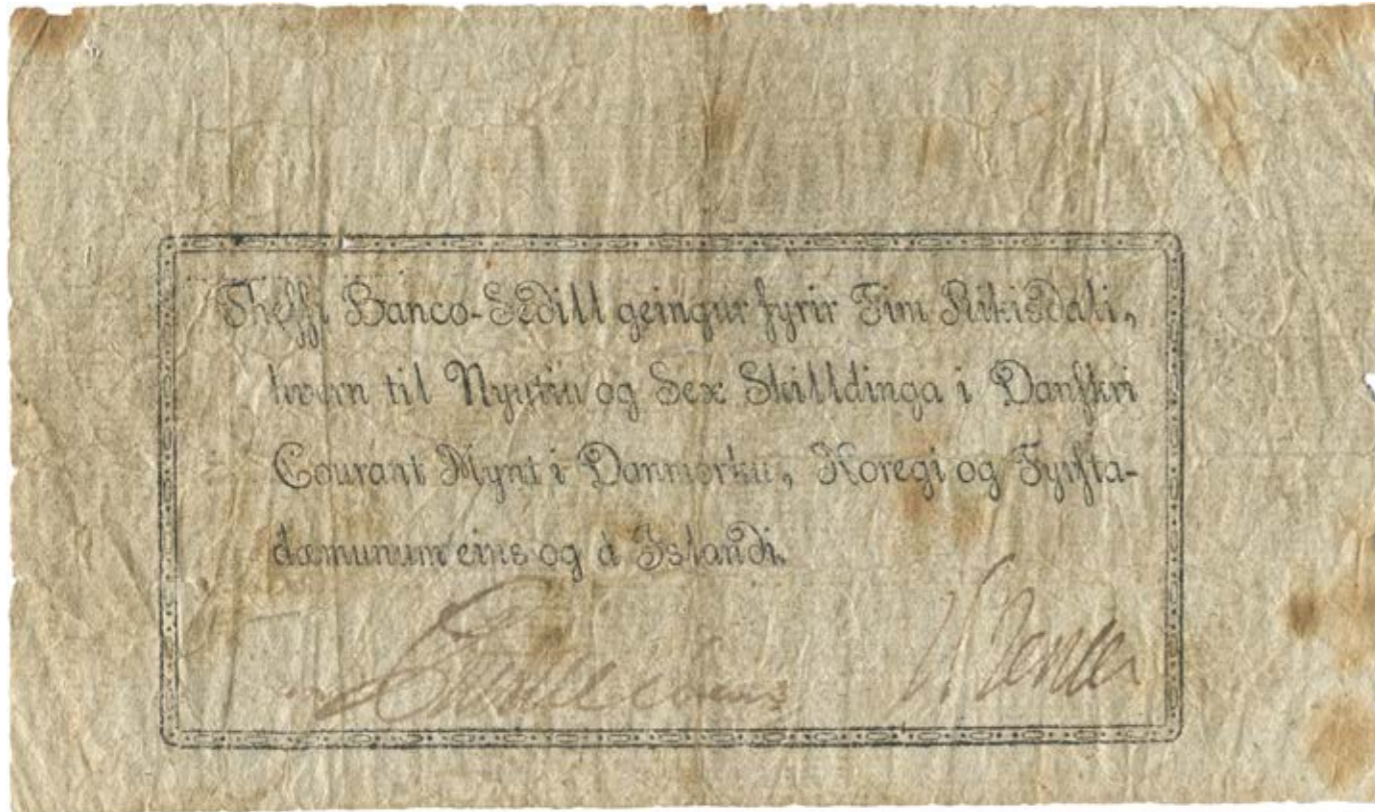 Thessi Banco-Sedill geingur fyrir Fim Rikisdali,
hvern til Nyutiu og Sex Skilldinga i Danskri
Courant Mynt i Danmørku, Noregi og Fyrsta-
dæmunum eins og á Islandi.